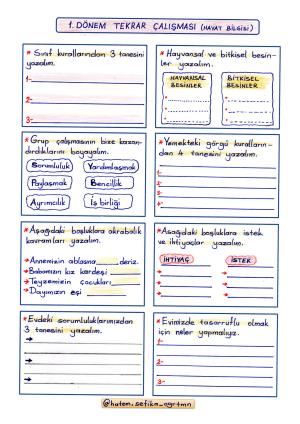 1. DÖNEM TEKRAR ÇALIŞMASI (HAYAT BİLGİSİ)
* Sınıf kurallarından 3 tanesini
yazalım.
1-
2-
3-
* Hayvansal ve bitkisel besin-
ler yazalım.
HAYVANSAL
BESİNLER
BİTKİSEL
BESİNLER
* Grup çalışmasının bize kazan-
dırdıklarını boyayalım.
Sorumluluk
Yardımlaşmak
Paylaşmak
Bencillik
Ayrımcılık
İş birliği
* Yemekteki görgü kuralların-
dan 4 tanesini yazalım.
1-
2-
3-
4-
* Aşağıdaki boşluklara akrabalık
kavramları yazalım.
Annemizin ablasına deriz.
Babamızın kız kardeşi
Teyzemizin çocukları
Dayımızın eşi
* Aşağıdaki boşluklara istek
ve ihtiyaçlar yazalım.
İHTİYAÇ
İSTEK
* Evdeki sorumluluklarımızdan
3 tanesini yazalım.
* Evimizde tasarruflu olmak
için neler yapmalıyız.
1-
2-
3-
@hatem.sefika_ogrtmn